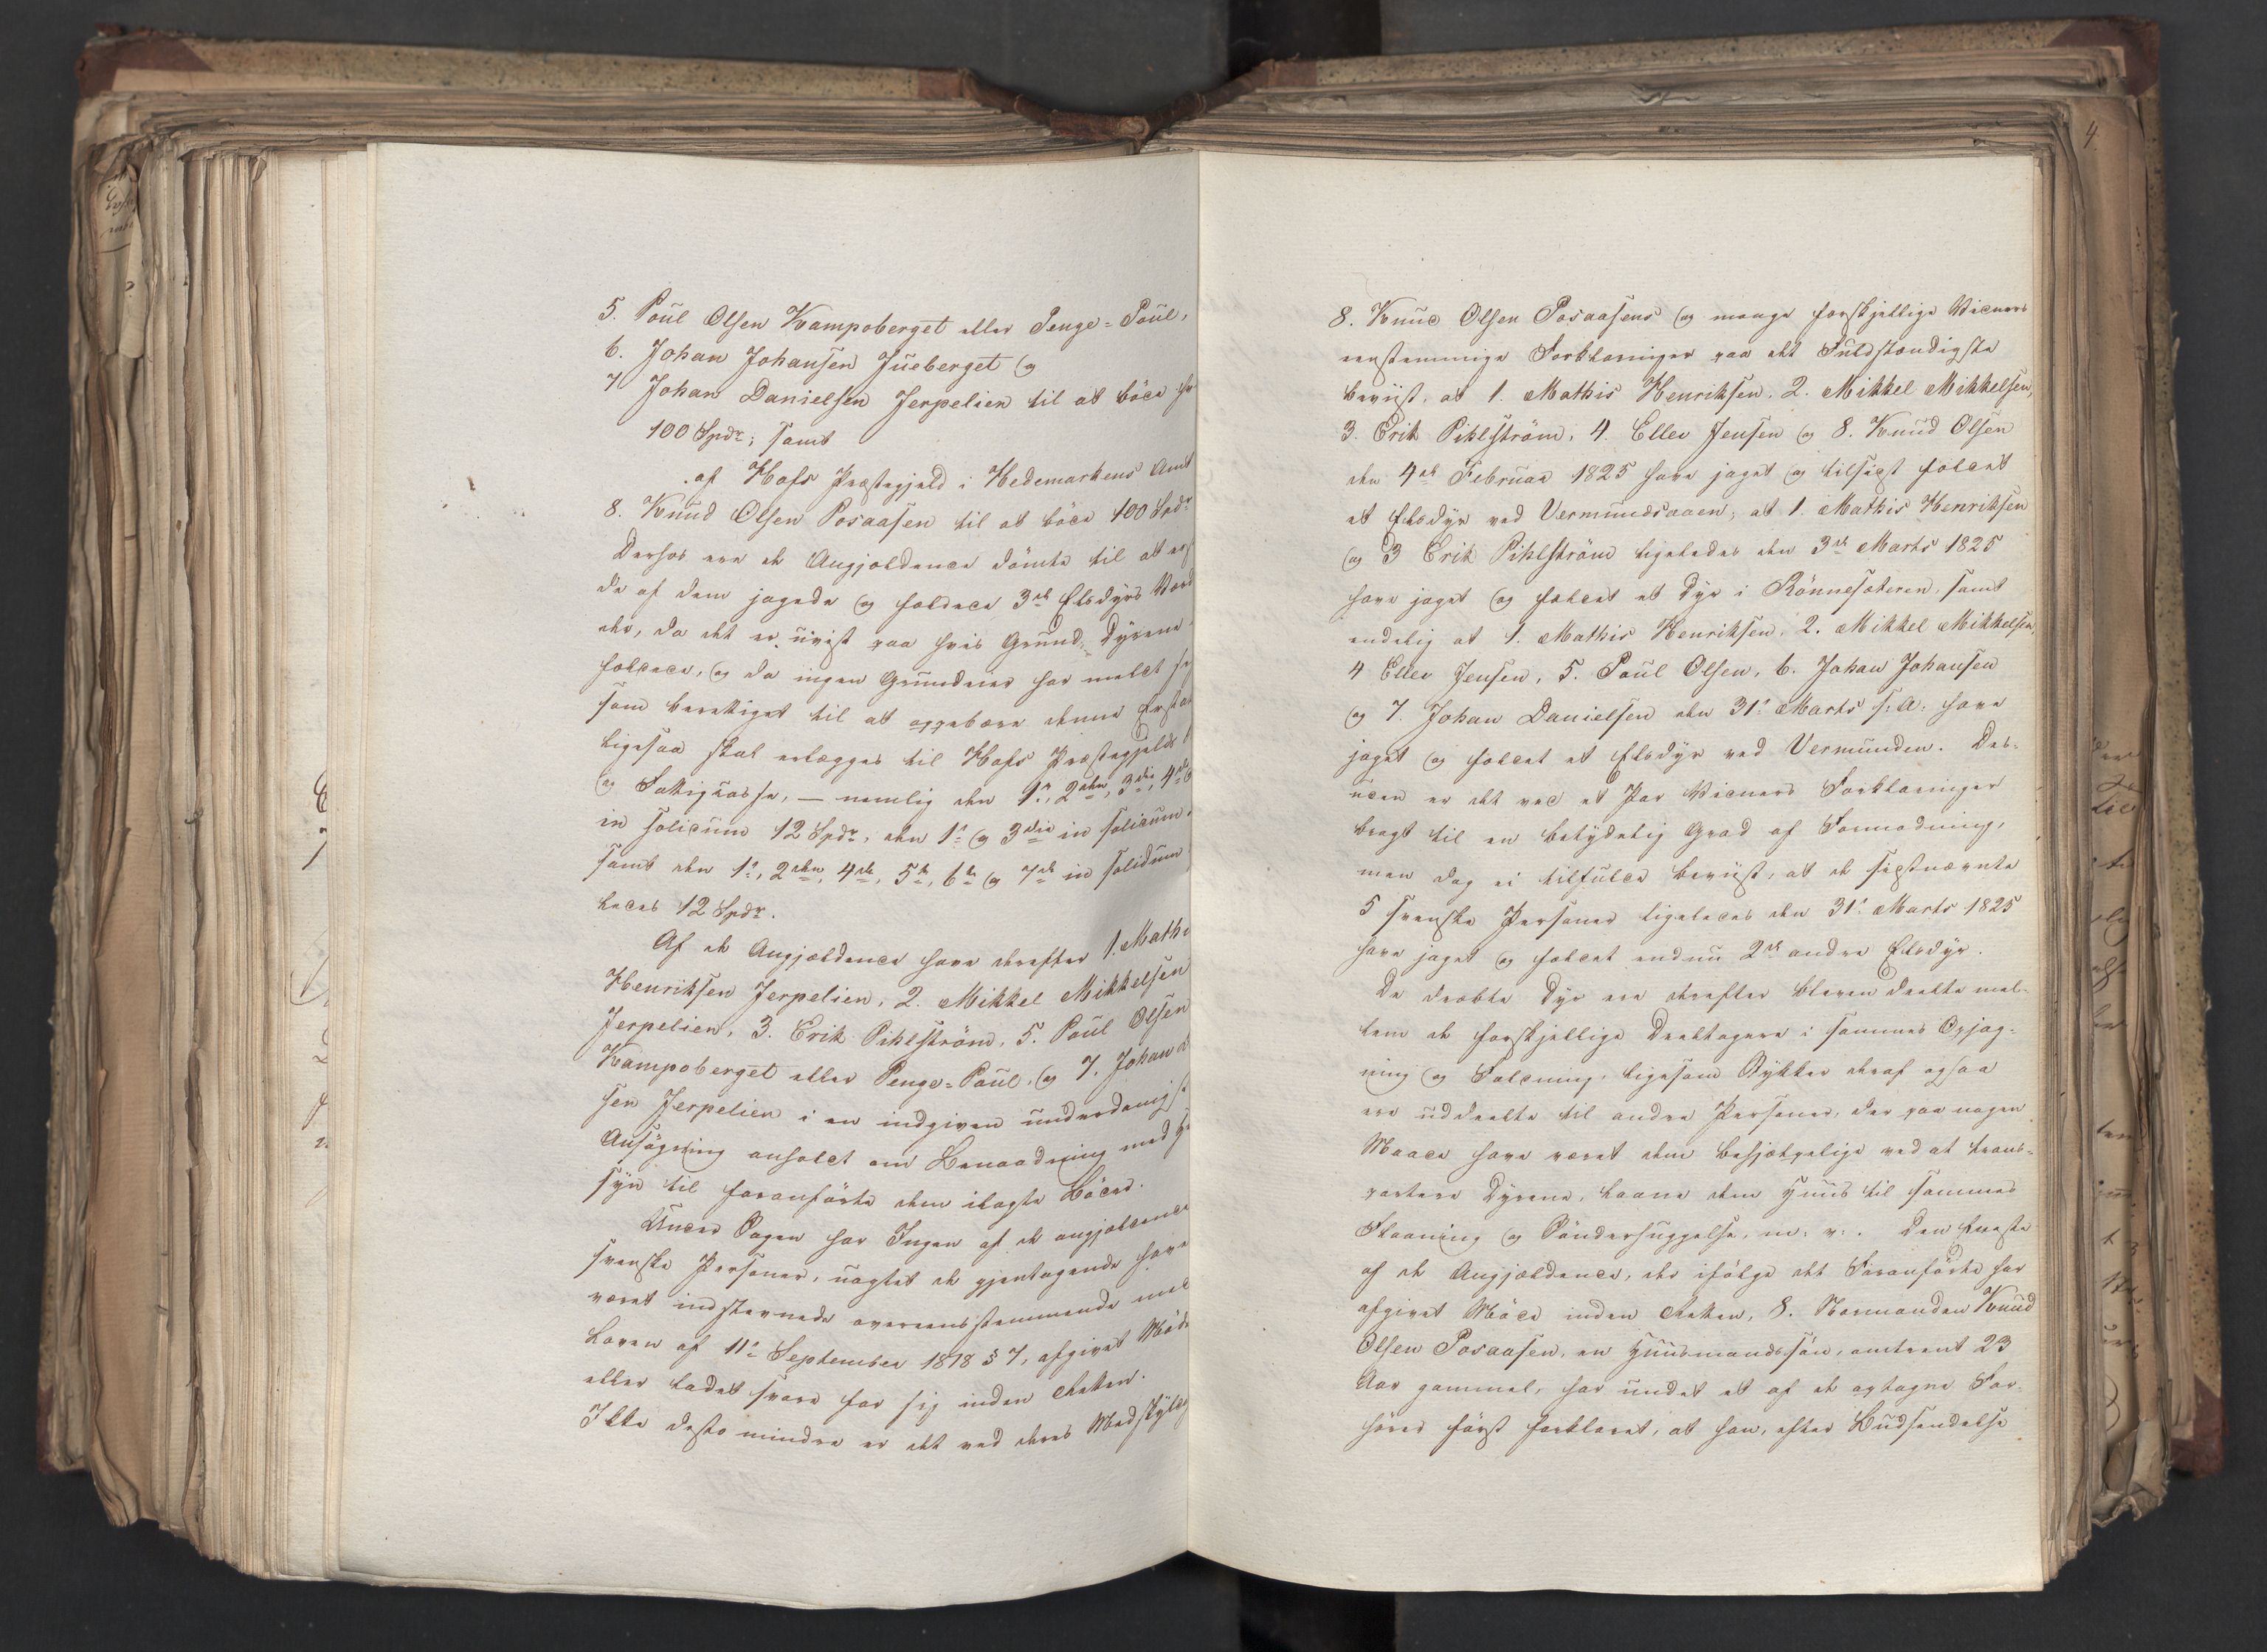 5. Poul Olsen Kampoberget eller Penge-Poul,
6. Johan Johansen Jueberget og
7 Johan Danielsen Jerpelien til at böde hv
100 Spdr; samt
af Hofs Præstegjeld i Hedemarkens Amt
8. Knud Olsen Posaasen til at böde 100 Spdr
Derhos ere de Angjældende dömte til at ers
de af dem jagede og fældede 3de Elsdyrs Værd
der, da det er uvist paa hvis Grund Dyrene
fældede, og da ingen Grundeier har meldt si
som berettiget til at oppebære denne Erstat
ligesaa skal erlægges til Hofs Præstegjelds
og Fattigkasse, — nemlig den 1e, 2den, 3die, 4de
in solidum 12 Spdr, den 1e og 3die in solidum
samt den 1e, 2den, 4de, 5te, 6te og 7de in solidum
ledes 12 Spdr.
Af de Angjældende have derefter 1. Mathi
Henriksen Jerpelien, 2. Mikkel Mikkelsen
Jerpelien, 3. Erik Pihlström, 5. Poul Olsen
Kampoberget eller Penge-Poul, og 7. Johan D
sen Jerpelien i en indgiven underdanigst
Ansögning anholdt om Benaadning med He
syn til foranförte dem ilagte Böder.
Under Sagen har Ingen af de angjældende
svenske Personer, uagtet de gjentagende have
været indstevnede overeensstemmende med
Loven af 11e September 1818 § 7, afgivet Möde
eller ladet svare for sig inden Retten.
Ikke desto mindre er det ved deres Medskyldig
4
8. Knud Olsen Posaasens og mange forskjellige Vidners
eenstemmige Forklaringer paa det Fuldstændigste
beviist, at 1. Mathis Henriksen, 2. Mikkel Mikkelsen,
3. Erik Pihlström, 4. Ellev Jensen og 8. Knud Olsen
den 4de Februar 1825 have jaget og tilsidst fældet
et Elsdyr ved Vermundsaaen, at 1. Mathis Henriksen
og 3 Erik Pihlström ligeledes den 3de Marts 1825
have jaget og fældet et Dyr i Rönnesæteren, samt
endelig at 1. Mathis Henriksen, 2. Mikkel Mikkelsen,
4 Ellev Jensen, 5. Poul Olsen, 6. Johan Johansen
og 7. Johan Danielsen den 31e Marts s. A. have
jaget og fældet et Elsdyr ved Vermunden. Des-
uden er det ved et Par Vidners Forklaringer
bragt til en betydelig Grad af Formodning,
men dog ei tilfulde beviist, at de sidstnævnte
5 svenske Personer ligeledes den 31e Marts 1825
have jaget og fældet endnu 2de andre Elsdyr.
De dræbte Dyr ere derefter blevne deelte mel-
lem de forskjellige Deeltagere i sammes Opjag-
ning og Fældning, ligesom Stykker deraf ogsaa
ere uddeelte til andre Personer, der paa nogen
Maade have været dem behjælpelige ved at trans-
portere Dyrene, laane dem Huus til sammes
Flaaning og Sönderhuggelse, m. v. . Den Eneste
af de Angjældende, der ifölge det Foranförte har
afgivet Möde inden Retten, 8. Normanden Knud
Olsen Posaasen, en Huusmandssön, omtrent 23
Aar gammel, har under et af de optagne For-
hörer först forklaret, at han, efter Budsendelse